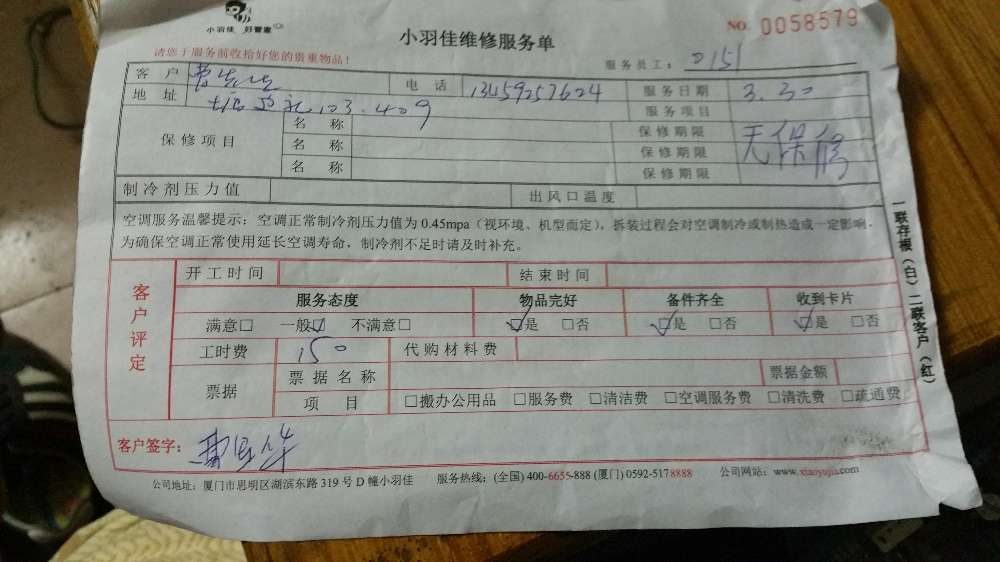 小羽佳 好管家
小羽佳维修服务单
NO. 0058579
请您于服务前收拾好您的贵重物品!
服务员工: 0151
客户 电话 13459257624 服务日期 3.30
地址 103.409 服务项目
保修项目 名称 保修期限 无保修
名称 保修期限
名称 保修期限
制冷剂压力值 出风口温度
空调服务温馨提示:空调正常制冷剂压力值为0.45mpa(视环境、机型而定),拆装过程会对空调制冷或制热造成一定影响,
为确保空调正常使用延长空调寿命,制冷剂不足时请及时补充。
客户评定
开工时间 结束时间
服务态度 物品完好 备件齐全 收到卡片
满意□ 一般☑ 不满意□ ☑是 □否 ☑是 □否 ☑是 □否
工时费 150 代购材料费
票据 票据名称 票据金额
项目 □搬办公用品 □服务费 □清洁费 □空调服务费 □清洗费 □疏通费
客户签字:
公司地址:厦门市思明区湖滨东路319号D幢小羽佳 服务热线:(全国)400-6655-888 (厦门)0592-5178888 公司网站:www.xiaoyujia.com
一联存根(白)二联客户(红)